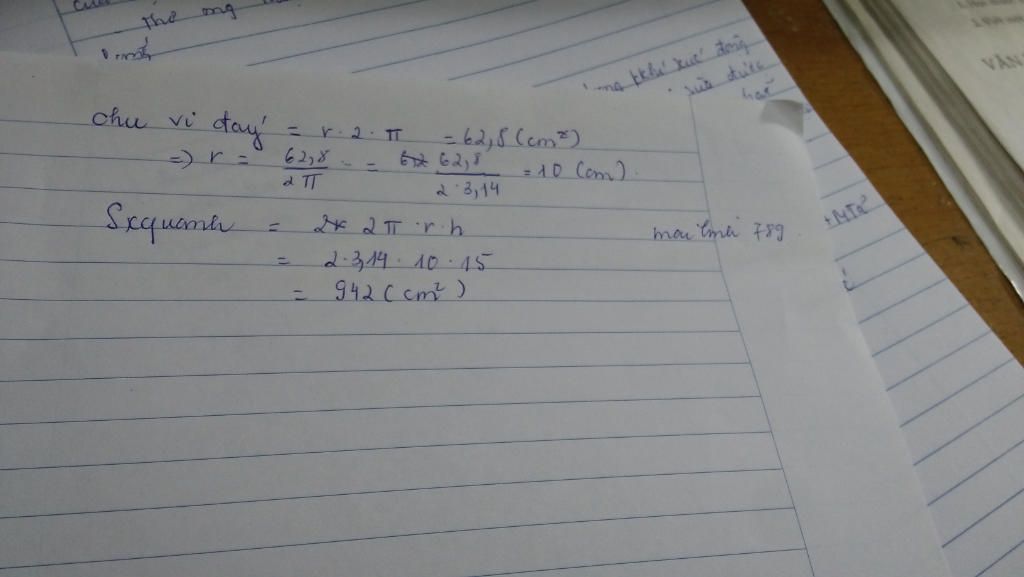 thế ong
chu vi đay' = r . 2 . π = 62,8 (cm²)
=> r = 62,8 / 2π = 62,8 / 2 . 3,14 = 10 (cm).
Sxquanh = 2π . r . h
= 2 . 3,14 . 10 . 15
= 942 (cm²)
mai 789
VĂN